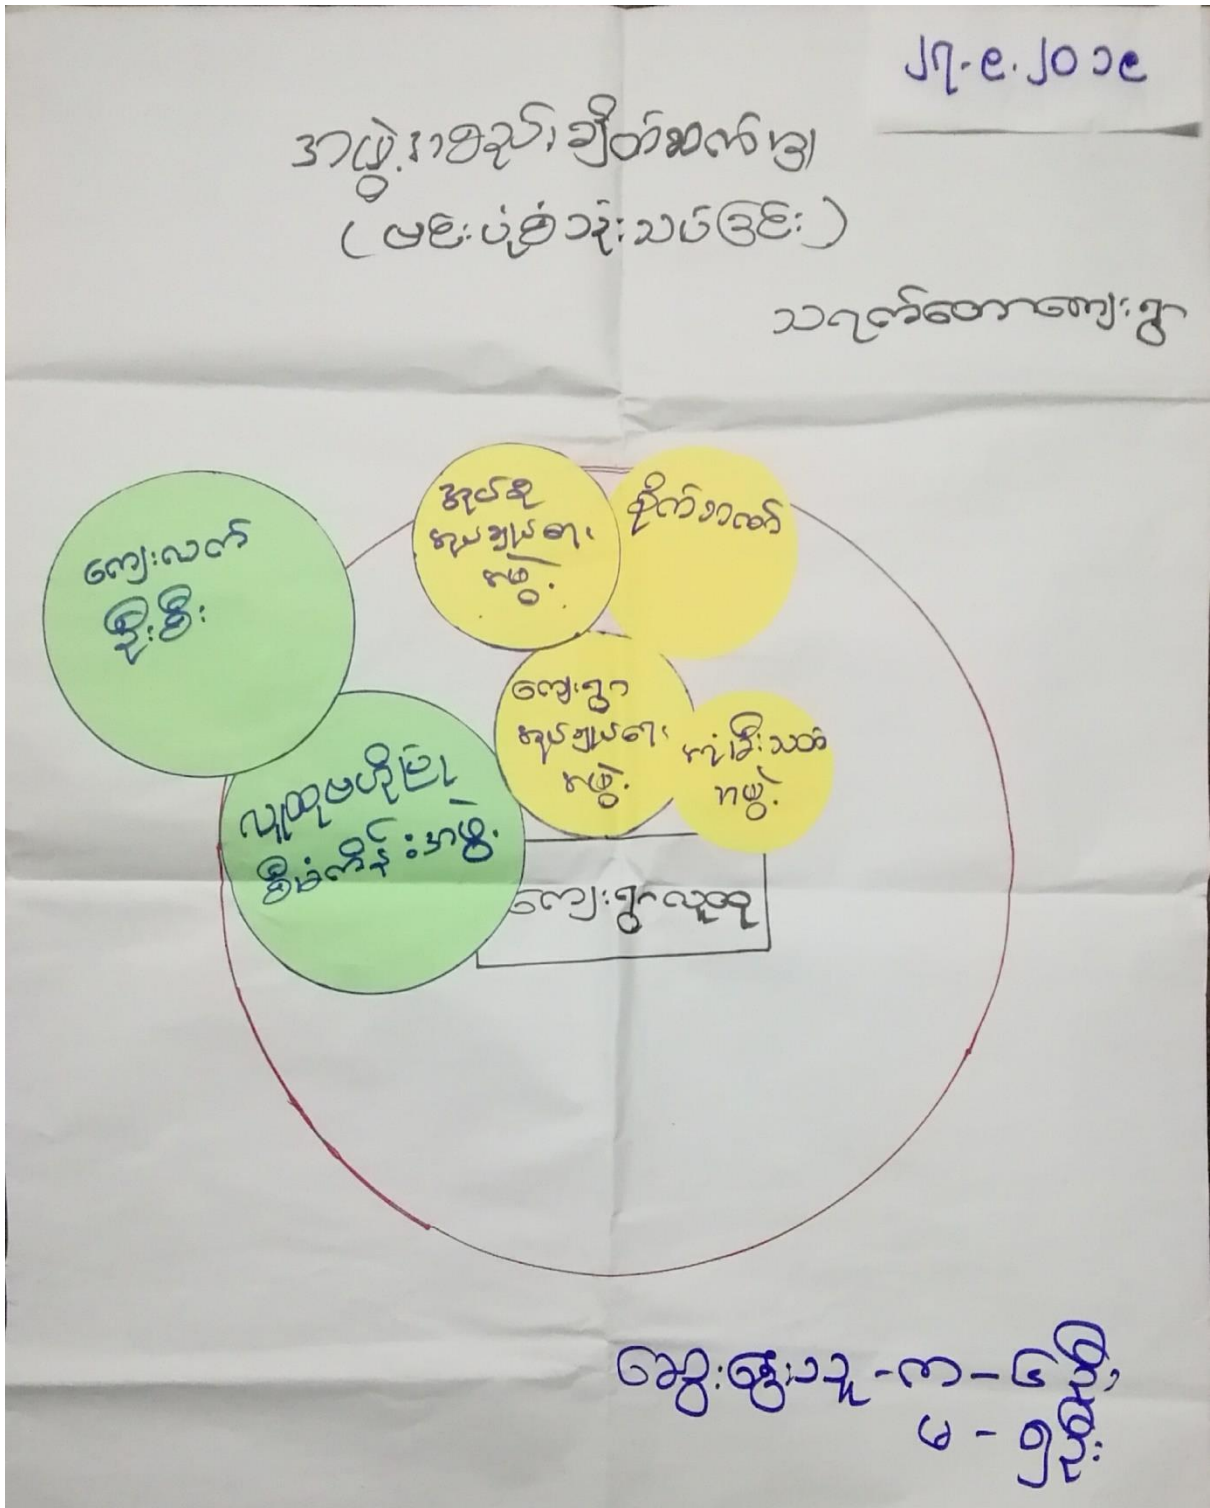 ၂၇.၉.၂၀၁၉
အဖွဲ့အစည်းချိတ်ဆက်မှု
(ဗင်းပုံစံသုံးသပ်ခြင်း)
သရက်တောကျေးရွာ
အုပ်စု
အုပ်ချုပ်ရေး
အဖွဲ့
စိုက်ဘဏ်
ကျေးလက်
ဦးစီး
ကျေးရွာ
အုပ်ချုပ်ရေး
အဖွဲ့
မီးသတ်
အဖွဲ့
လူထုဗဟိုပြု
စီမံကိန်းအဖွဲ့
ကျေးရွာလူထု
ဆွေးနွေးသူ - ကျာ - ၆ ဦး
မ - ၅ ဦး